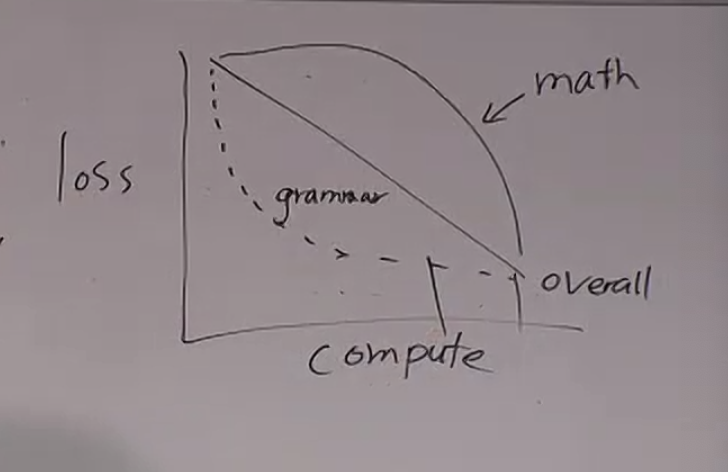 math
loss
grammar
overall
compute